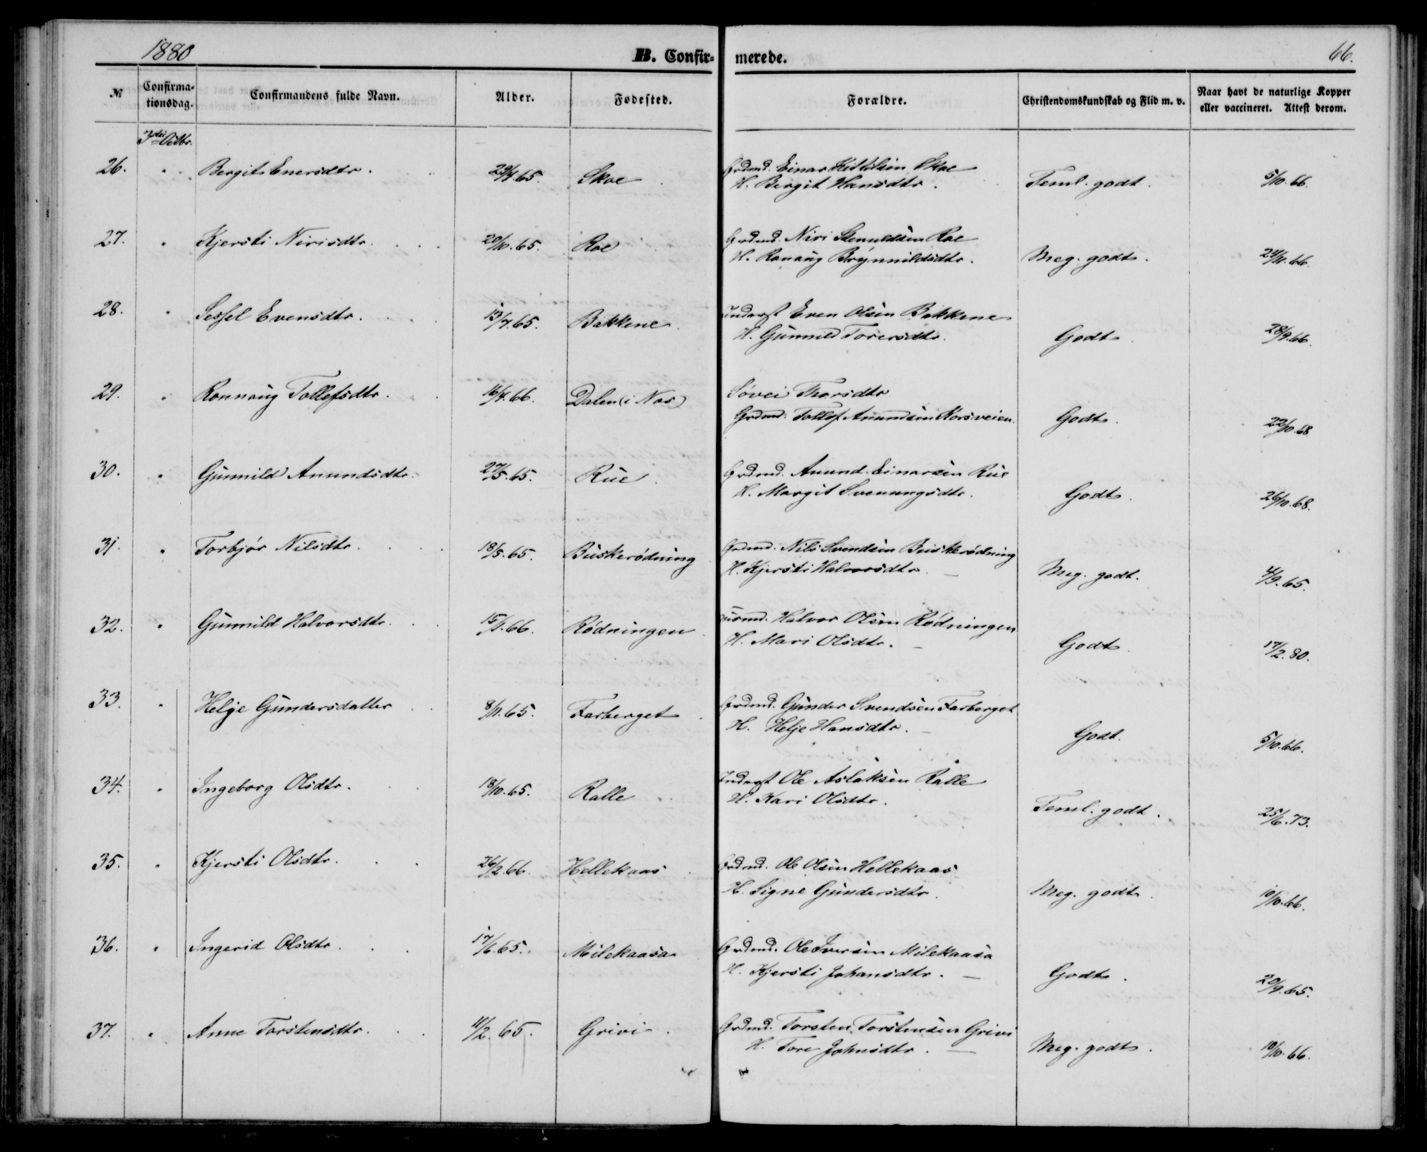 1880
B. Confirmerede.
66.
№ Confirmationsdag. Confirmandens fulde Navn. Alder. Fødested. Forældre. Christendomskundskab og Flid m. v. Naar havt de naturlige Kopper eller vaccineret. Attest derom.
3die Octbr.
26. Bergit Enersdtr. 65. Skoe Grdmd. Einar Skoe
H. Bergit Hansdtr. Teml. godt. 5/10.66.
27. Kjersti Nirisdtr. 29/10.65. Roe Grdmd. Niri Roe
H. Ronaug Brynnildsdtr. Meg. godt. 24/11.66.
28. Sessel Evensdtr. 13/7.65. Bakkene Inderst Even Olsen Bakkene
H. Gunnild Toresdtr. Godt 28/9.66.
29. Ronnaug Tollefsdtr. 16/4.66. Dalen (i Nes) Søvei Thorsdtr
Grdmd. Tollef Amundsen Korsveien. Godt 22/10.68
30. Gunnild Amundsdtr. 27/5.65. Rue Grdmd. Amund Einarsen Rue
H. Margit Svenungsdtr. Godt 26/10.68.
31. Torbjør Nilsdtr. 18/5.65. Buskerødning Grdmd. Nils Svendsen Buskerødning
H. Kjersti Halvorsdtr. Meg. godt. 4/9.65.
32. Gunnild Halvorsdtr. 15/1.66. Rødningen Husmd. Halvor Olsen Rødningen
H. Mari Olsdtr. Godt 17/2.80.
33. Helje Gundersdatter 8/11.65. Farberget Grdmd. Gunder Svendsen Farberget
H. Helje Hansdtr. Godt. 5/10.66.
34. Ingeborg Olsdtr. 18/10.65. Ralle Inderst Ole Aslaksen Ralle
H. Kari Olsdtr. Teml. godt. 25/6.73.
35. Kjersti Olsdtr. 26/2.66. Hellekaas Grdmd. Ole Olsen Hellekaas
H. Signe Gundersdtr. Meg. godt. 66.
36. Ingerid Olsdtr. 17/6.65. Milekaasa Grdmd. Ole Iversen Milekaasa
H. Kjersti Johansdtr. Godt 65.
37. Anne Torstensdtr. 4/2.65. Grivi Grdmd. Torsten Torstensen Grivi
H. Tore Johnsdtr. Meg. godt. 19/10.66.